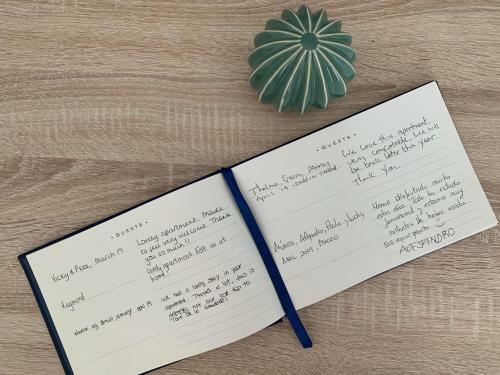 GUESTS
Vicky & Pete, March 19
Lovely apartment. Made
to feel very welcome. Thank
you so much!!
Raymond
lovely apartment. Felt so at
home!
April 19
we had a lovely stay in your
apartment. Thanks a lot, this is
not our last trip to
GUESTS
Thelma, Gerry, Mammy
April 19
We love this apartment,
very comfortable. We will
be back later this year.
Thank you.
Alfonso, Alejandro, Paola y Lucky
Abril 2019, Madrid
Hemos disfrutado mucho
estos días. Todo ha estado
fenomenal y estamos muy
contentos de haber venido
Nos vemos pronto
ALESSANDRO